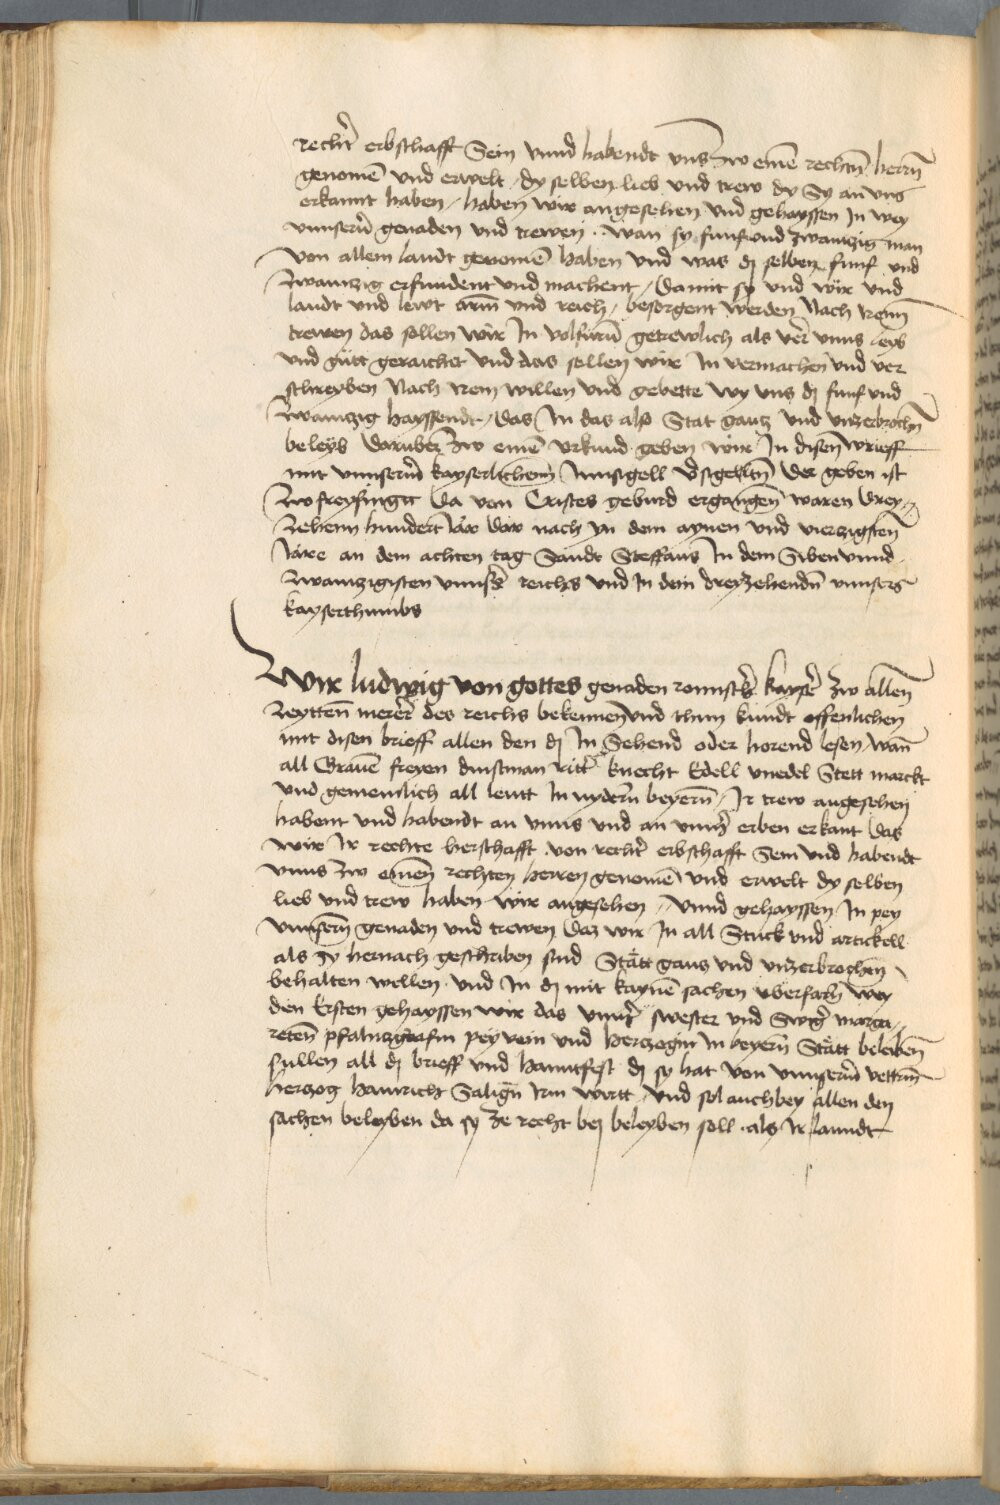 rechtr erbschafft Sein vnnd habendt vns zw eine͂ rechtn͂ herrn͂
genome͂ vnd erwelt / dy selben lieb vnd trew dy Sy an vns
erkannt haben / haben wir angesehen vnd gehayssen In wey
vnnsern͂ genaden vnd trewen . wan sy funf vnd zwaintzig man
von allem landt genome͂ haben vnd was dj selben funf vnd
zwaintzig erfindent vnd machent / Damit sy vnd wir vnd
landt vnd lewt arm͂ vnd reich / besorgent werden Nach iren͂
trewen das sollen wir In volfurn͂ getrewlich als verr vnns leyb
vnd gutt geraichet vnd das sollen wir In vermachen vnd ver
schreyben Nach irem willen vnd gebette wy vns dj funf vnd
zwaintzig hayssendt / Das In das also Stat gantz vnd vnzerbrochn͂
beleyb Daruber zw eine͂ vrkund geben wir In disen͂ wrieff
mit vnnserm͂ kayserlichem͂ Innsigell Der geben ist
Zw freysingn Da von Cristes geburd ergangen͂ waren Drey
zehenn hundert Jar Dar nach yn dem aynen vnd vierzigsten
Jare an dem achten tag Sandt Steffans In dem Siben vnnd
zwaintzigisten vnnsers reichs vnd In dem dreyzehendn͂ vnnsers
kayserthumbs
Wir ludwig von gottes genaden romischer kayser zw allen͂
Zeytten͂ merer des reichs bekennen vnd thun kundt offenlichen
mit disen brieff allen den dj In Sehend oder horend lesen wan͂
all Graue͂ freyen dinstman Ritter knecht Edell vnedel Stett marckt
vnd gemeinlich all leutt In nydern͂ beyern͂ / Ir trew angesehen
habent vnd habendt an vnns vnd an vnnsr erben erkant Das
wir Ir rechte herschafft von rechtr erbschafft Sein vnd habendt
vnns zw einen͂ rechten herren genome͂ vnd erwelt dy selben
lieb vnd trew haben wir angesehen / vnnd gehayssen In pey
vnnsern͂ genaden vnd trewen Daz wir In all Stuck vnd artickell
als Sy hernach geschriben sind Stätt gantz vnd vnzerbrochen
behalten wellen vnd In dj mit kayne͂ sachen vberfarn͂ wey
den Ersten gehayssen wir das vnnsr swester vnd Swigr marga
reten͂ pfalnzgrafin pey rein vnd herzogin In beyern͂ Stätt beleiben͂
sullen all dj brieff vnd hanntfest dj sy hat von vnnserm͂ vettern͂
herzog hainrich Salign͂ Irm wirtt / vnd sol auch bey allen den
sachen beleyben da sy ze recht bej beleyben soll . als Ir lanndt